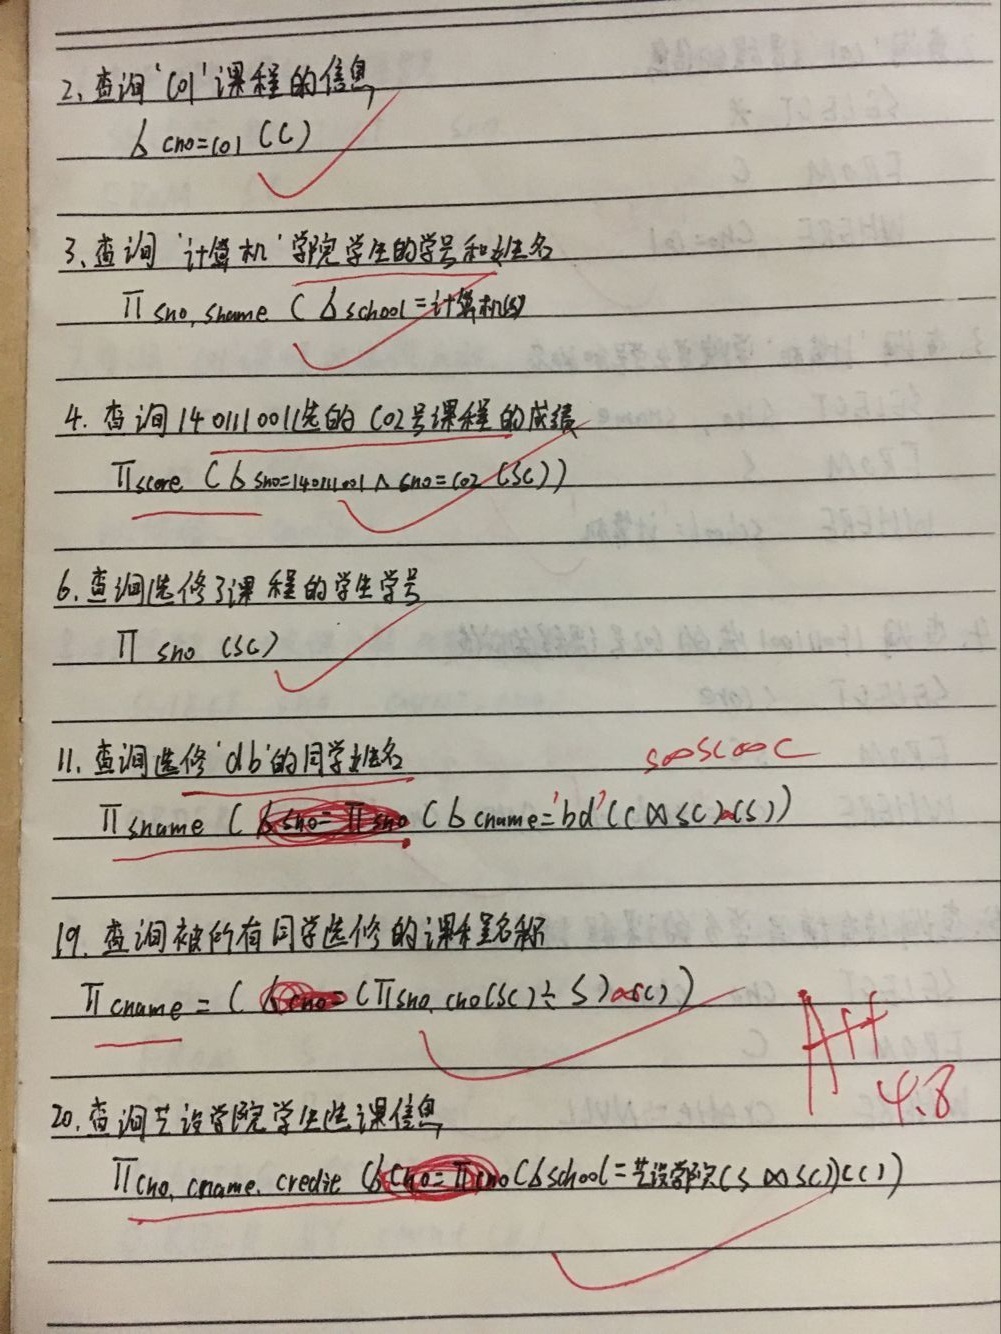 2、查询'C01'课程的信息
δ cno=C01 (C)
3、查询'计算机'学院学生的学号和姓名
Π sno, sname (δ school=计算机(S)
4. 查询14011001选的C02号课程的成绩
Π score (δ sno=14011001 ∧ sno=C02 (SC))
6、查询选修了课程的学生学号
Π sno (SC)
11、查询选修'db'的同学姓名
S∞SC∞C
Π sname (δ sno= Π sno (δ cname='bd'(C∞SC)∞(S))
19. 查询被所有同学选修的课程名称
Π cname = (δ cno= (Π sno, cno(SC)÷S)∞C))
A++
4.8
20. 查询艺设学院学生选课信息
Π cno, cname, credie (δ cno= Π cno(δ school=艺设学院(S∞SC))(C))